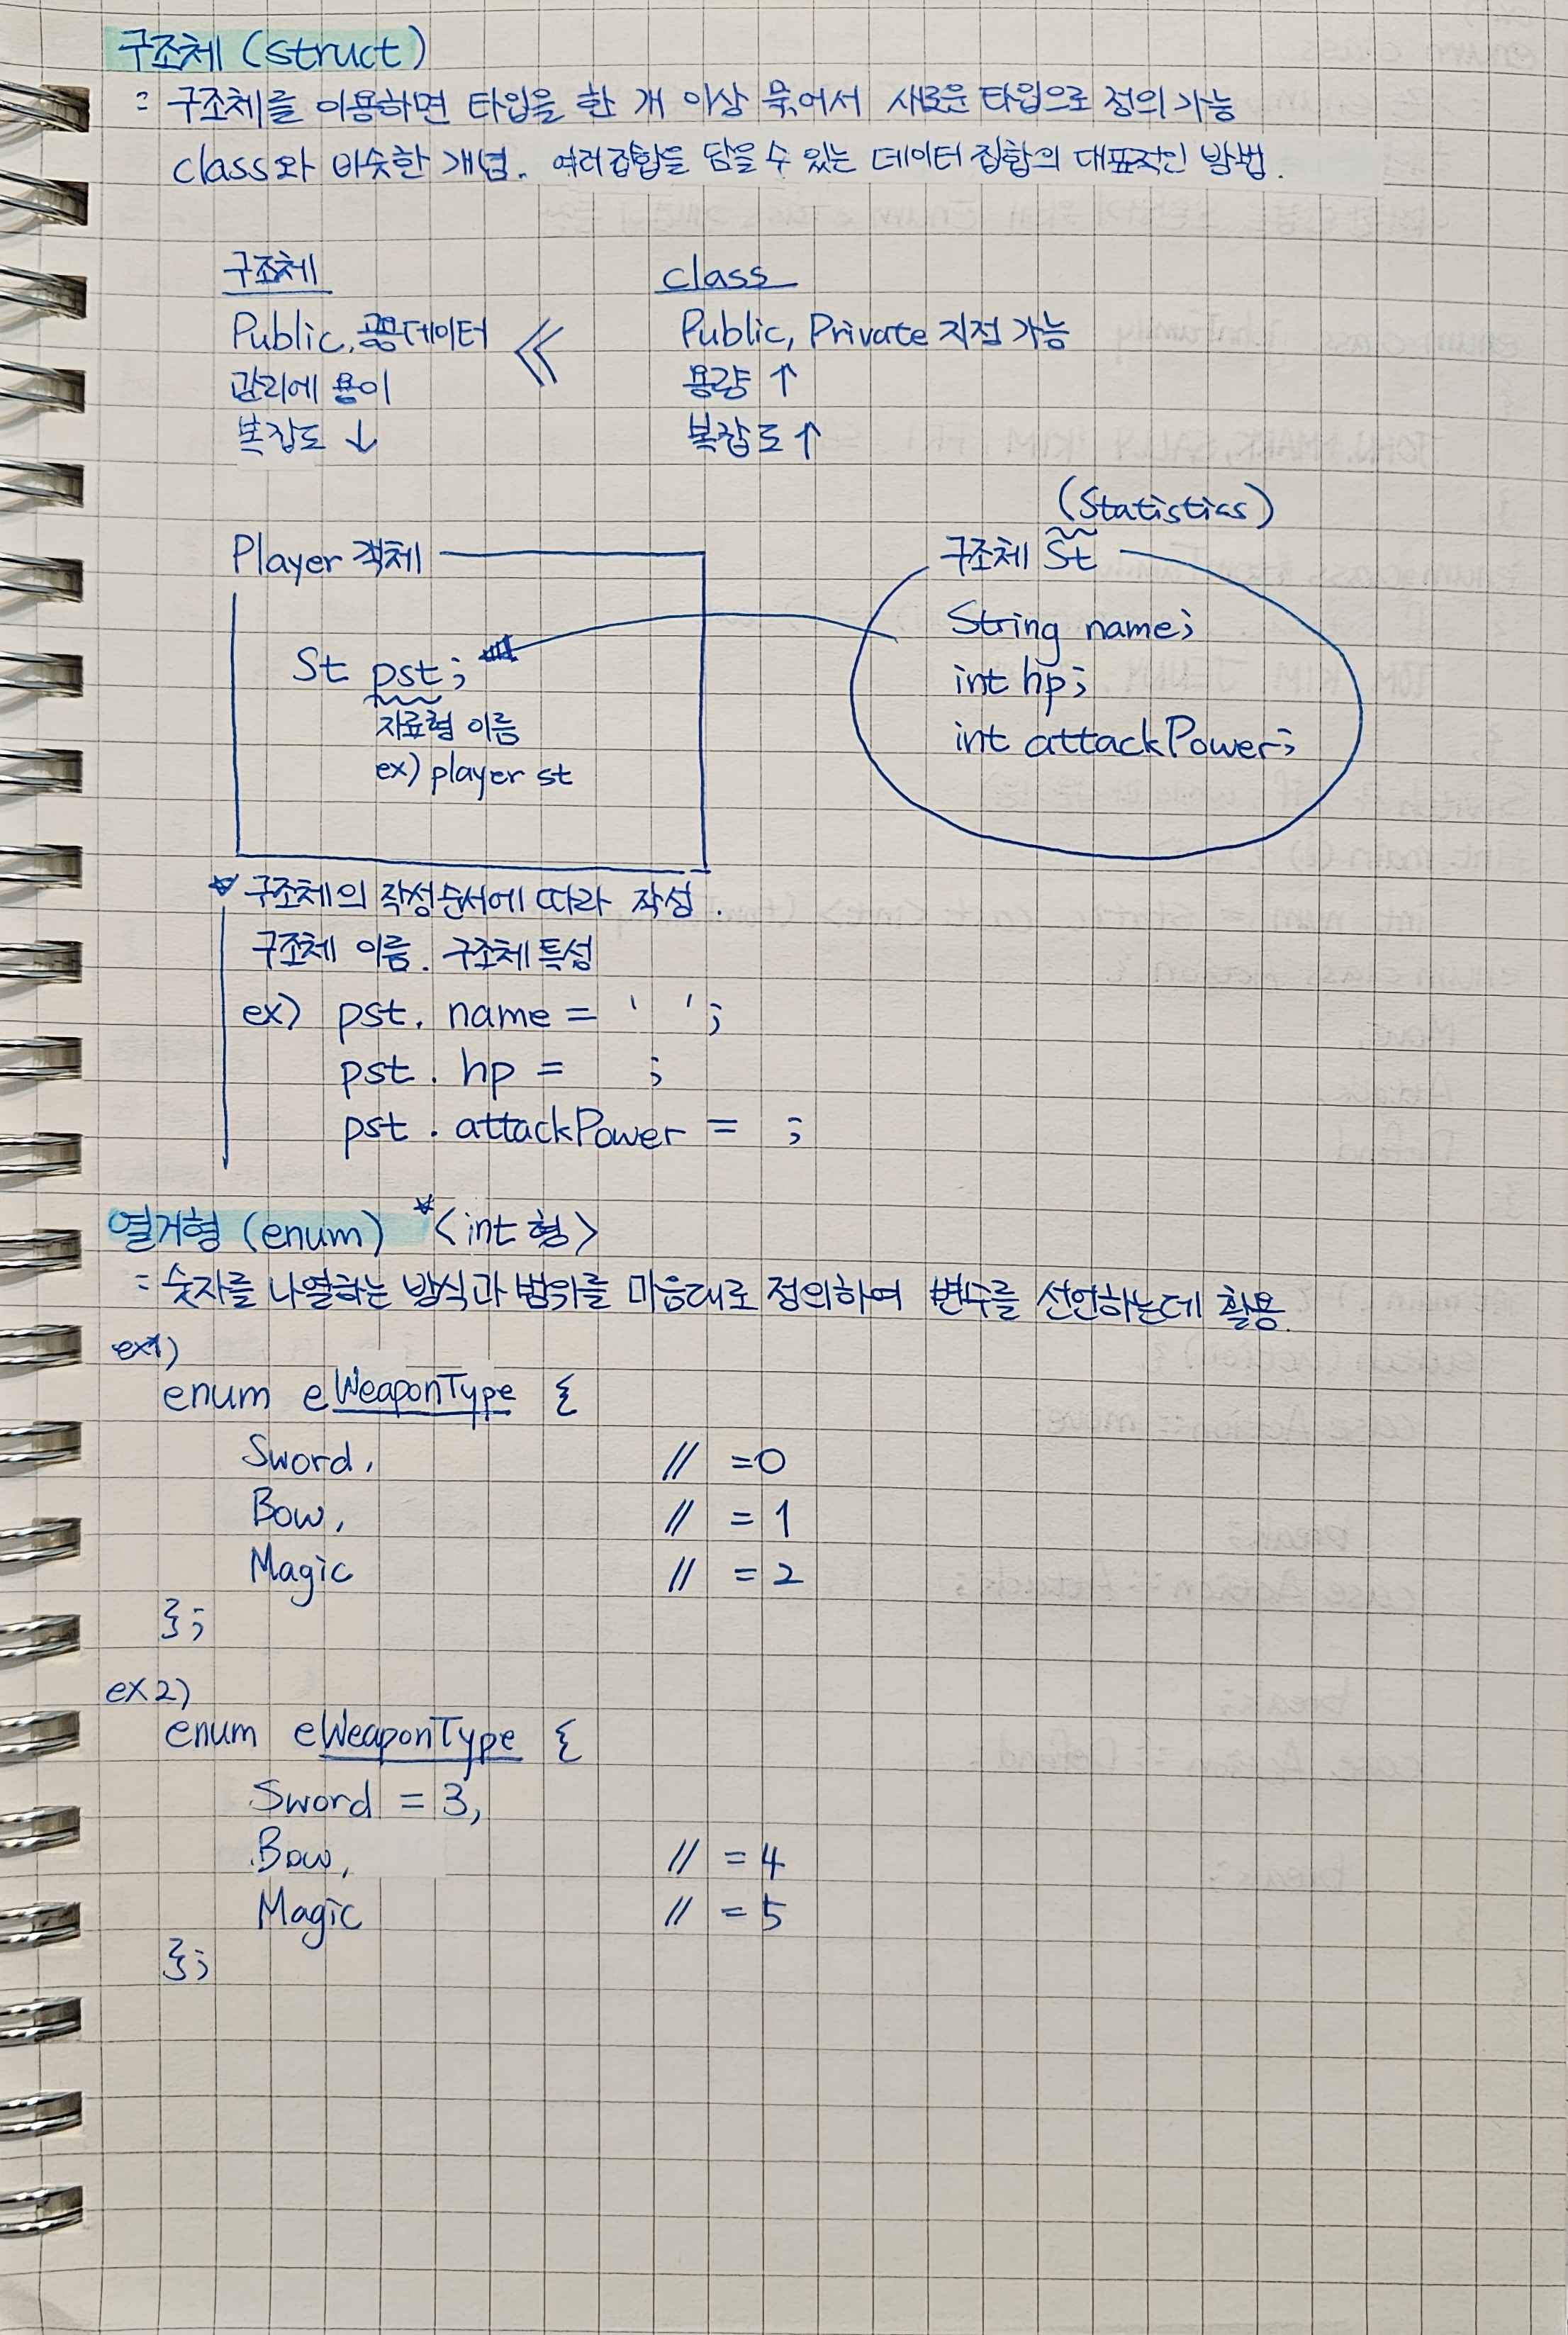 구조체 (struct)
= 구조체를 이용하면 타입을 한 개 이상 묶어서 새로운 타입으로 정의 가능
class와 비슷한 개념. 여러집합을 담을 수 있는 데이터 집합의 대표적인 방법.
구조체
Public, 공용데이터
관리에 용이
복잡도 ↓
≪
class
Public, Private 지정 가능
용량 ↑
복잡도 ↑
Player 객체
St pst;
자료형 이름
ex) player st
(Statistics)
구조체 St
String name;
int hp;
int attackPower;
★ 구조체의 작성순서에 따라 작성.
구조체 이름. 구조체 특성
ex) pst. name = ' ';
pst. hp = ;
pst. attackPower = ;
열거형 (enum) ★<int 형>
= 숫자를 나열하는 방식과 범위를 마음대로 정의하여 변수를 선언하는데 활용.
ex1)
enum eWeaponType {
Sword, // =0
Bow, // = 1
Magic // = 2
};
ex2)
enum eWeaponType {
Sword = 3,
Bow, // = 4
Magic // = 5
};